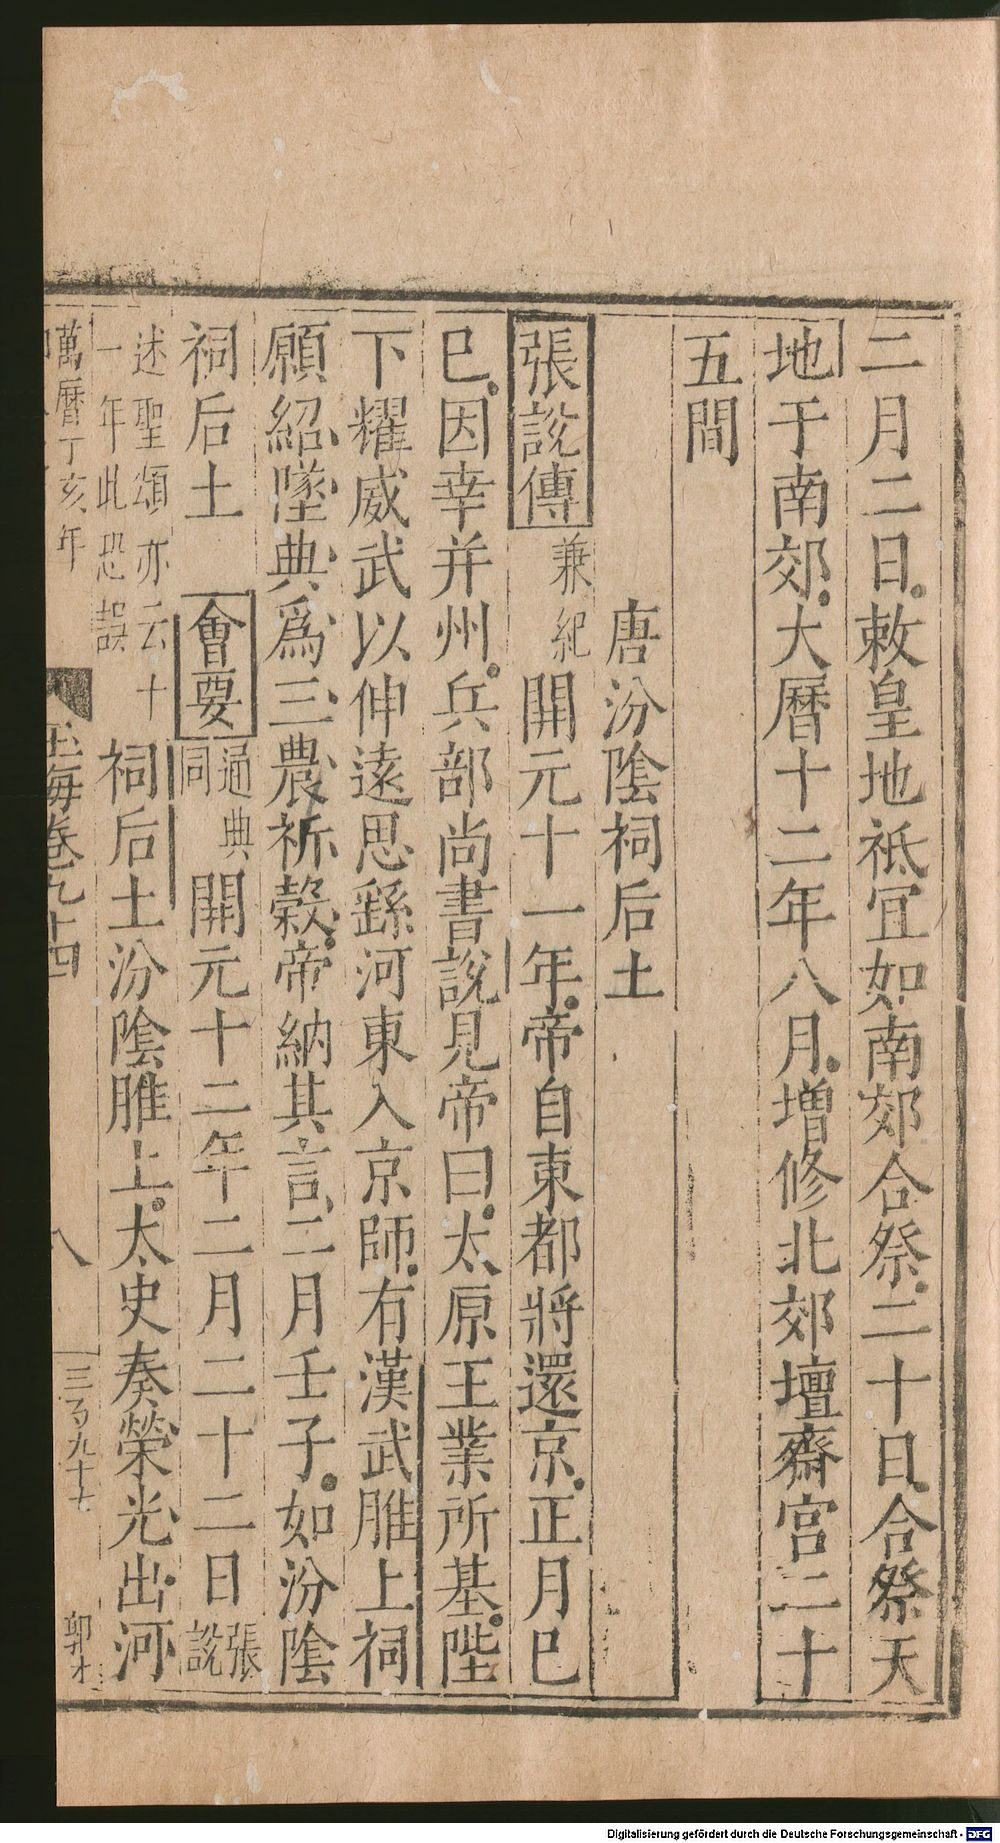 二月二日敕皇地祇宜如南郊合祭二十日合祭天
地于南郊大曆十二年八月增修北郊壇齋宮二十
五間
唐汾陰祠后土
張說傳兼紀開元十一年帝自東都將還京正月巳
巳因幸并州兵部尚書說見帝曰太原王業所基陛
下耀威武以伸遠思繇河東入京師有漢武脽上祠
願紹墜典爲三農祈穀帝納其言二月壬子如汾陰
祠后土會要通典同開元十二年二月二十二日張說
述聖頌亦云十一年此恐誤祠后土汾陰脽上太史奏榮光出河
萬曆丁亥年
玉海卷九十四
八
Digitalisierung gefördert durch die Deutsche Forschungsgemeinschaft - DFG